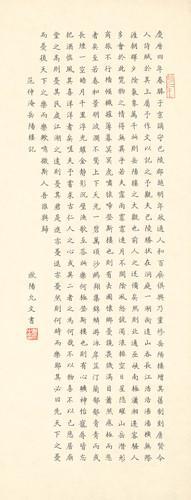 慶曆四年春滕子京謫守巴陵郡越明年政通人和百廢俱興乃重修岳陽樓增其舊制刻唐賢今
人詩賦於其上屬予作文以記之予觀夫巴陵勝狀在洞庭一湖銜遠山吞長江浩浩湯湯橫無際
涯朝暉夕陰氣象萬千此則岳陽樓之大觀也前人之述備矣然則北通巫峽南極瀟湘遷客騷人
多會於此覽物之情得無異乎若夫霪雨霏霏連月不開陰風怒號濁浪排空日星隱曜山岳潛形
商旅不行檣傾楫摧薄暮冥冥虎嘯猿啼登斯樓也則有去國懷鄉憂讒畏譏滿目蕭然感極而悲
者矣至若春和景明波瀾不驚上下天光一碧萬頃沙鷗翔集錦鱗游泳岸芷汀蘭郁郁青青而或
長煙一空皓月千里浮光躍金靜影沉璧漁歌互答此樂何極登斯樓也則有心曠神怡寵辱皆忘
把酒臨風其喜洋洋者矣嗟夫予嘗求古仁人之心或異二者之為何哉不以物喜不以己悲居廟
堂之高則憂其民處江湖之遠則憂其君是進亦憂退亦憂然則何時而樂耶其必曰先天下之憂
而憂後天下之樂而樂歟噫微斯人吾誰與歸
范仲淹岳陽樓記
歐陽允文書